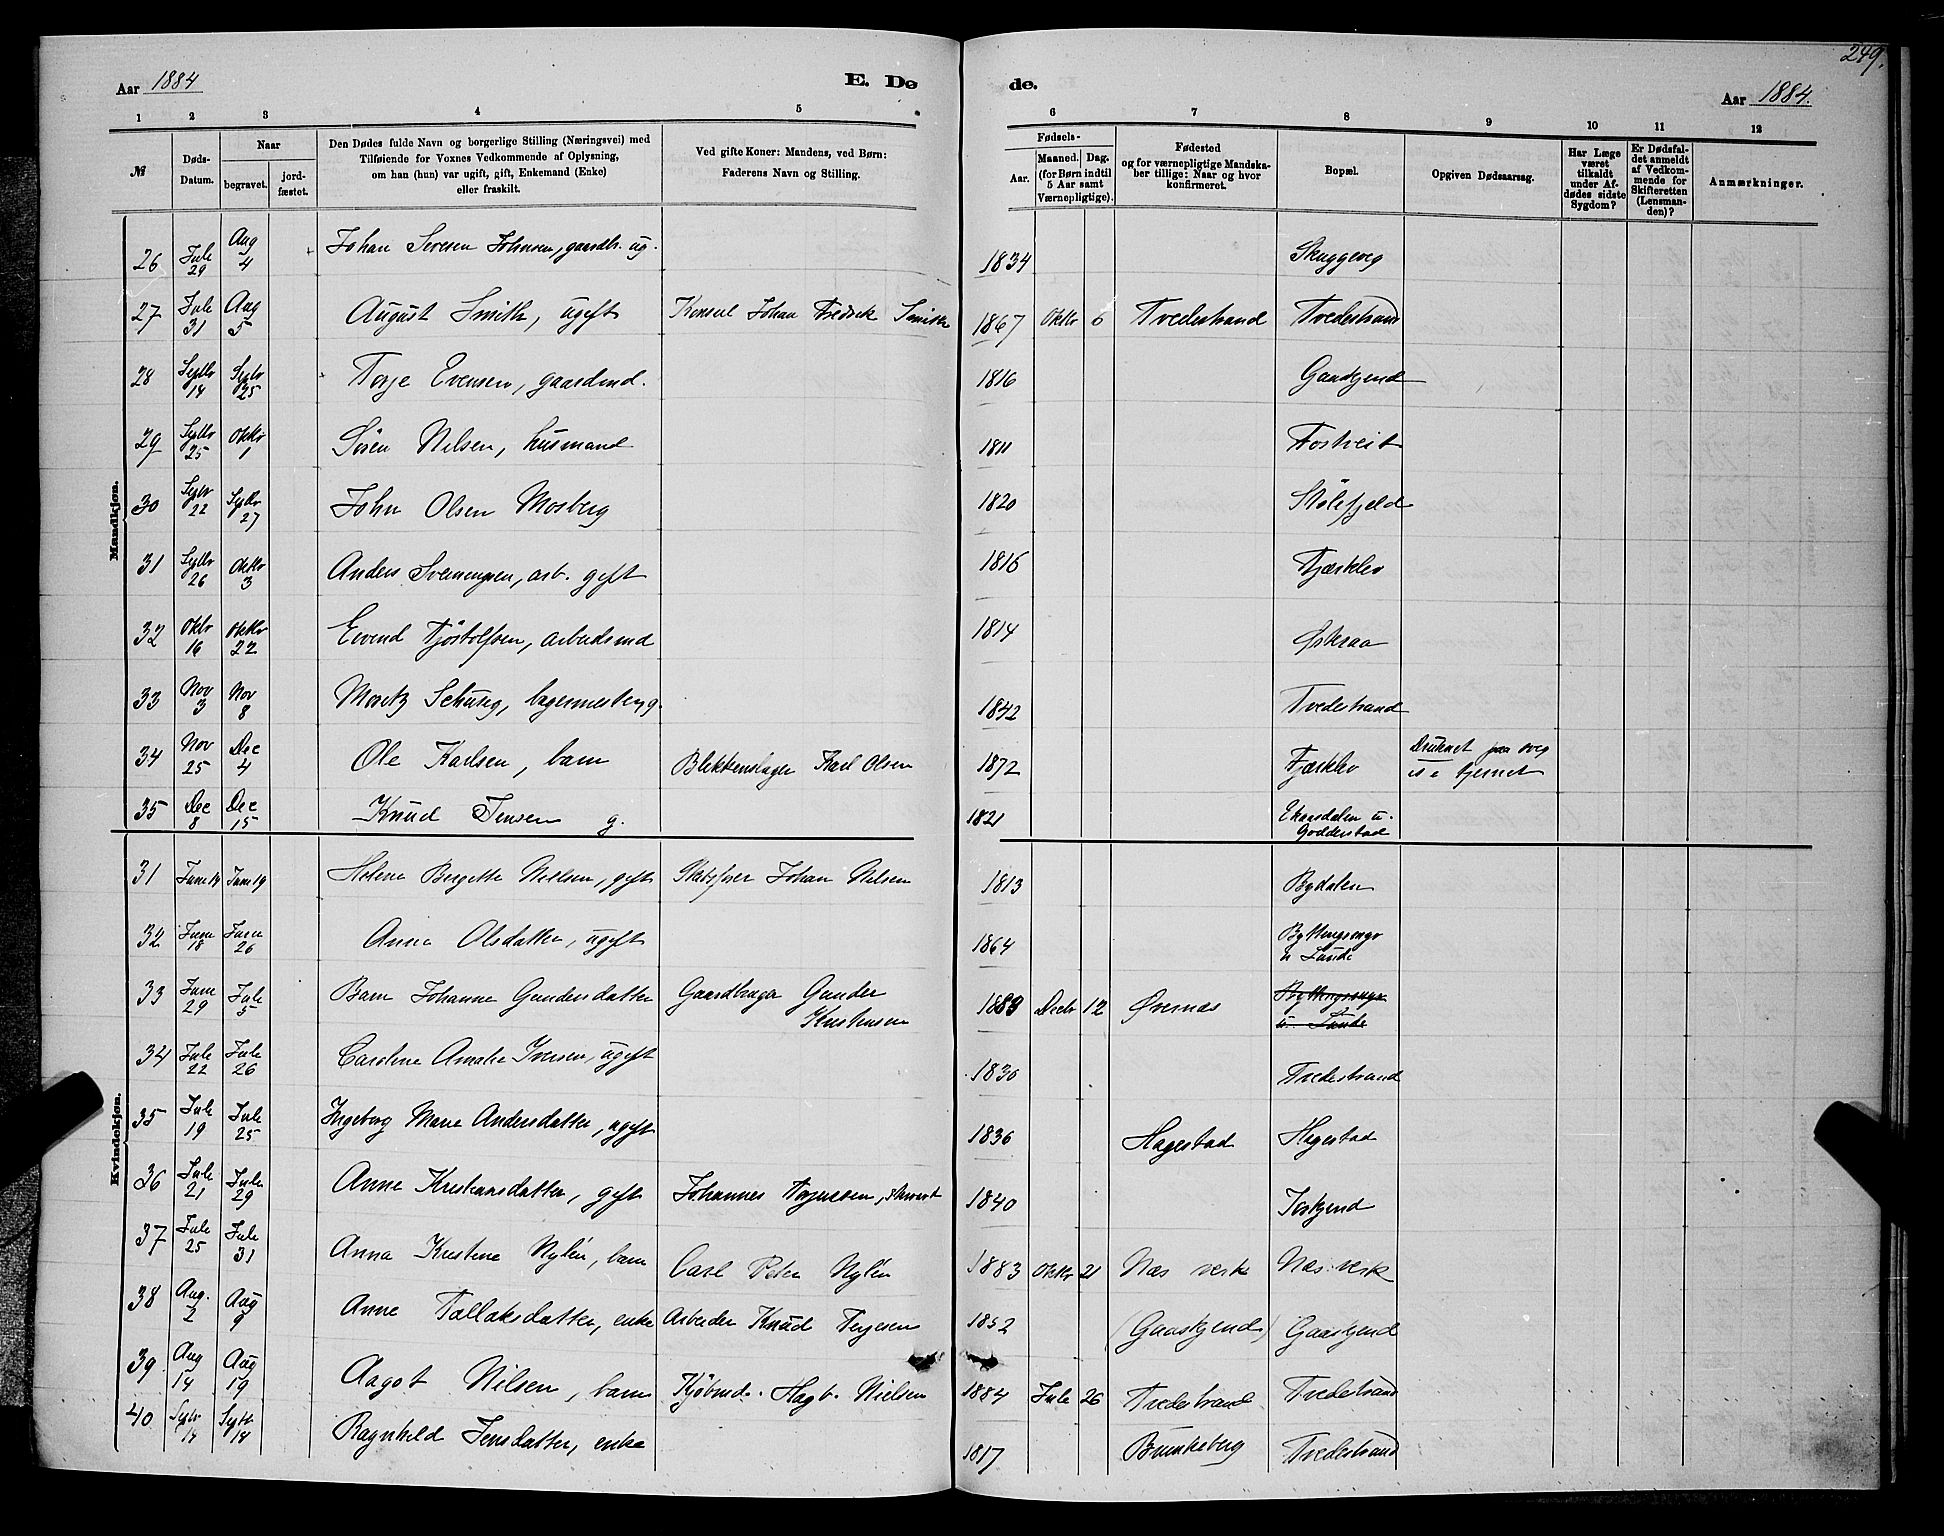 249.
Aar 1884 E. Dø de. Aar 1884.
1 2 3 4 5 6 7 8 9 10 11 12
№ Døds-Datum. Naar begravet. jord-fæstet. Den Dødes fulde Navn og borgerlige Stilling (Næringsvei) med Tilføiende for Voxnes Vedkommende af Oplysning, om han (hun) var ugift, gift, Enkemand (Enke) eller fraskilt. Ved gifte Koner: Mandens, ved Børn: Faderens Navn og Stilling. Fødsels- Aar. Maaned. Dag. (for Børn indtil 5 Aar samt Værnepligtige). Fødested og for værnepligtige Mandskaber tillige: Naar og hvor konfirmeret. Bopæl. Opgiven Dødsaarsag. Har Læge været tilkaldt under Afdødes sidste Sygdom? Er Dødsfaldet anmeldt af Vedkommende for Skifteretten (Lensmanden)? Anmærkninger.
Mandkjøn.
26 Jule 29 Aug 4 Johan Johnsen, gaardb. ug. 1834
27 Jule 31 Aug 5 August Smith, ugift Konsul Johan Fredrik Smith 1867 Oktbr 6 Tvedestrand Tvedestrand
28 Septbr 14 Septbr 25 Terje Evensen, gaardmd. 1816 Gaaskjend
29 Septbr 25 Oktbr 1 Søren Nilsen, husmand 1811 Fostveit
30 Septbr 22 Septbr 27 John Olsen Mosberg 1820 Stölefjeld
31 Septbr 26 Oktbr 3 Anders Sveinungsen, arb. gift 1816 Fjærklev
32 Oktbr 16 Oktbr 22 Eivind Tjöstolfsen, arbeidsmd 1814
33 Nov 3 Nov 8 Moritz Schurig, bagermester, g. 1842 Tvedestrand
34 Nov 25 Dec 4 Ole Karlsen, barn Blikkenslager Karl Olsen 1872 Fjærklev Druknet
35 Dec 8 Dec 15 Knud Jensen g. 1821 Ekaasdalen u. Godderstad
Kvindekjøn.
31 June 14 June 19 Helene Birgitte Nielsen, gift Johan Nilsen 1813 Bydalen
32 June 18 June 26 Anne Olsdatter, ugift 1864 Byttingsmyr u Sande
33 June 29 Jule 5 Barn Johanne Gundersdatter Gaardbruger Gunder Kristensen 1883 Decbr 12 Øvernæs Byttingsmyr u. Sande
34 Jule 22 Jule 26 Caroline Amalie Iversen, ugift 1830 Tvedestrand
35 Jule 19 Jule 25 Ingeborg Marie Andersdatter, ugift 1836 Hagestad Hagestad
36 Jule 21 Jule 29 Anne Kristiansdatter, gift Johannes Terjussen, 1840
37 Jule 25 Jule 31 Anna Kristine Nylén, barn Carl Peter Nylén 1883 Oktbr 21 Næs verk Næs verk
38 Aug. 2 Aug 9 Anne Tallaksdatter, enke Arbeider Knud Terjesen 1852 (Gaaskjend) Gaaskjend
39 Aug 14 Aug 19 Aagot Nilsen, barn Kjöbmd. Hagb. Nielsen 1884 Jule 26 Tvedestrand Tvedestrand
40 Septbr 14 Septbr 18 Ragnhild Jensdatter, enke 1817 Brunkeberg Tvedestrand